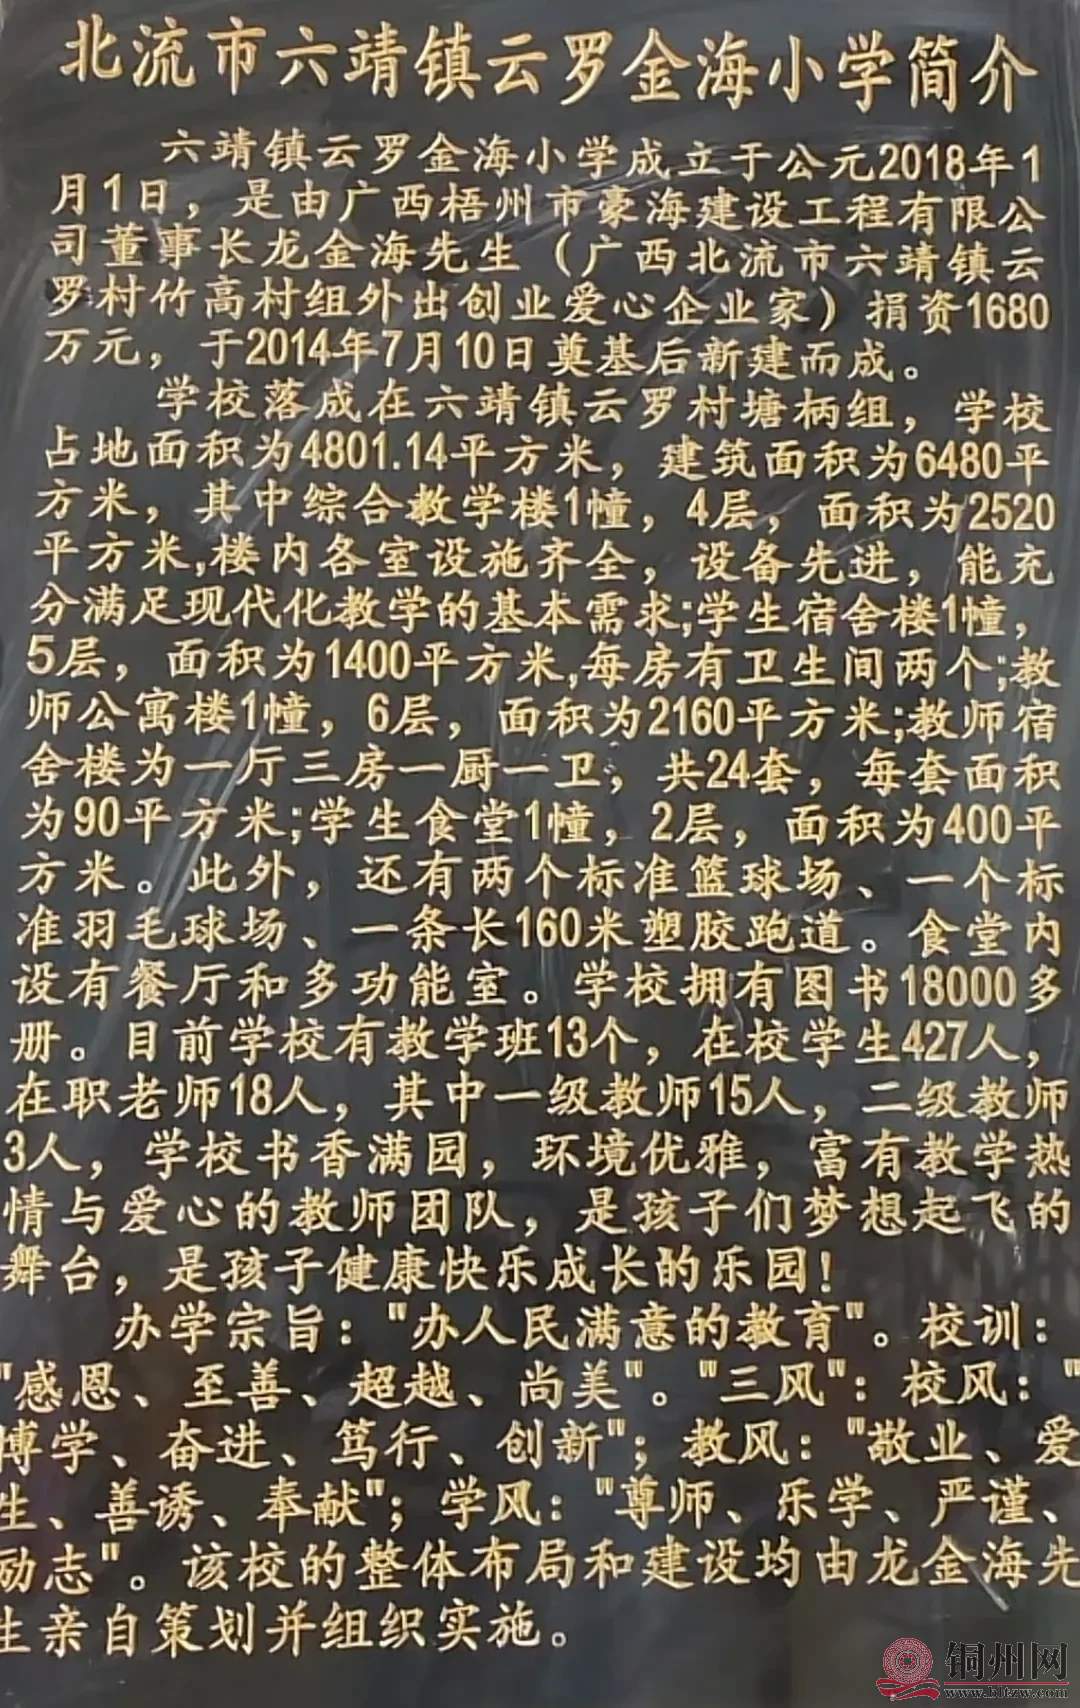 北流市六靖镇云罗金海小学简介
六靖镇云罗金海小学成立于公元2018年1
月1日，是由广西梧州市豪海建设工程有限公
司董事长龙金海先生（广西北流市六靖镇云
罗村竹高村组外出创业爱心企业家）捐资1680
万元，于2014年7月10日奠基后新建而成。
学校落成在六靖镇云罗村塘柄组，学校
占地面积为4801.14平方米，建筑面积为6480平
方米，其中综合教学楼1幢，4层，面积为2520
平方米,楼内各室设施齐全，设备先进，能充
分满足现代化教学的基本需求;学生宿舍楼1幢，
5层，面积为1400平方米,每房有卫生间两个;教
师公寓楼1幢，6层，面积为2160平方米;教师宿
舍楼为一厅三房一厨一卫，共24套，每套面积
为90平方米;学生食堂1幢，2层，面积为400平
方米。此外，还有两个标准篮球场、一个标
准羽毛球场、一条长160米塑胶跑道。食堂内
设有餐厅和多功能室。学校拥有图书18000多
册。目前学校有教学班13个，在校学生427人，
在职老师18人，其中一级教师15人，二级教师
3人，学校书香满园，环境优雅，富有教学热
情与爱心的教师团队，是孩子们梦想起飞的
舞台，是孩子健康快乐成长的乐园!
办学宗旨："办人民满意的教育"。校训：
"感恩、至善、超越、尚美"。"三风"：校风："
博学、奋进、笃行、创新"；教风："敬业、爱
生、善诱、奉献"；学风："尊师、乐学、严谨、
励志"。该校的整体布局和建设均由龙金海先
生亲自策划并组织实施。
铜州网
www.bltzw.com